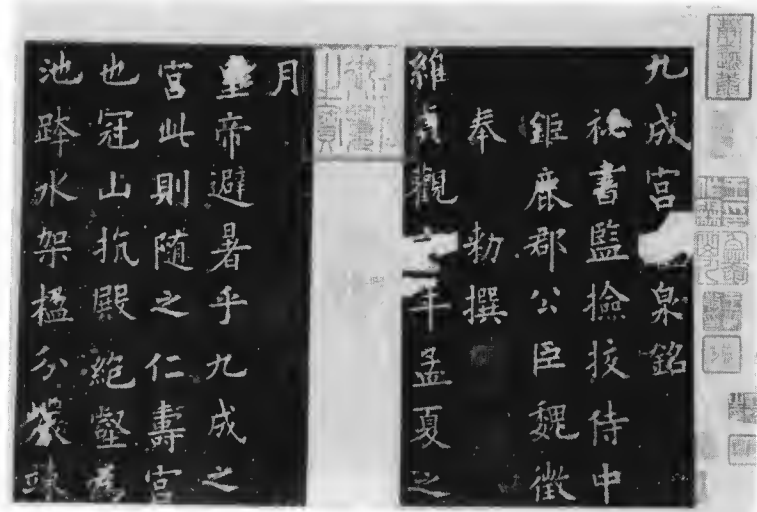 九成宮泉銘
祕書監撿挍侍中
鉅鹿郡公臣魏徵
奉勑撰
維貞觀年孟夏之
月
皇帝避暑乎九成之
宮此則隨之仁壽宮
也冠山抗殿絕壑為
池跨水架楹分巖竦